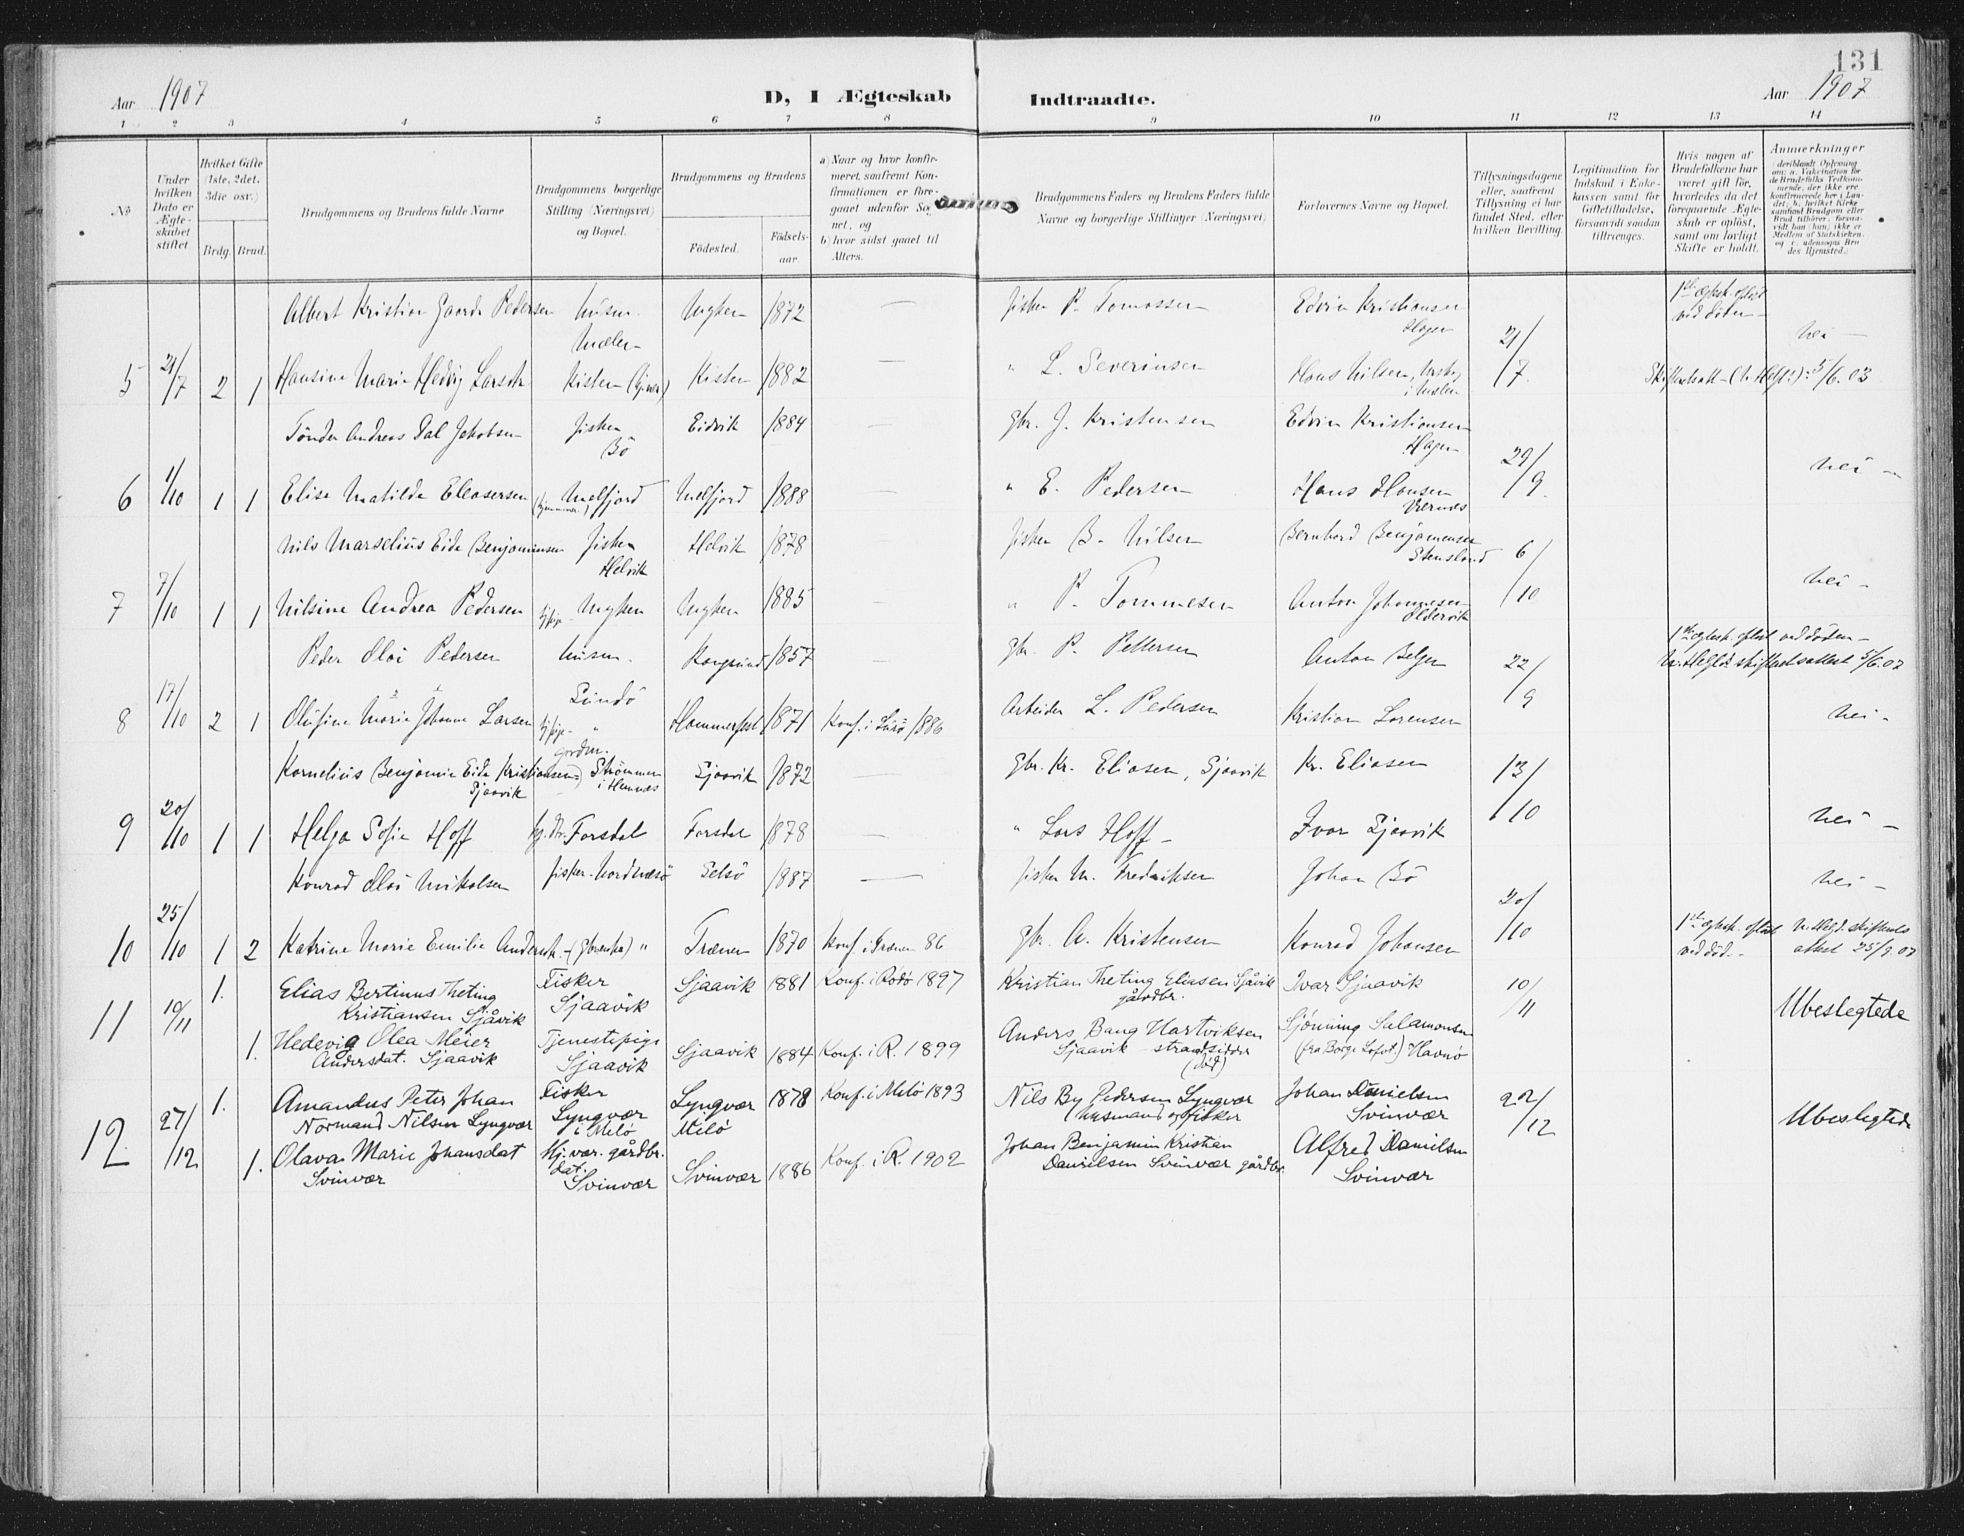 131
Aar 1907
D, I Ægteskab Indtraadte.
Aar 1907
1 2 3 4 5 6 7 8 9 10 11 12 13 14
No
Under hvilken Dato er Ægteskabet stiftet.
Hvilket Gifte (1ste, 2det, 3die osv.)
Brdg. Brud.
Brudgommens og Brudens fulde Navne
Brudgommens borgerlige Stilling (Næringsvei) og Bopæl.
Brudgommens og Brudens
Fødested.
Fødselsaar.
a) Naar og hvor konfirmeret, saafremt Konfirmationen er foregaaet udenfor Sognet, og
b) hvor sidst gaaet til Alters.
Brudgommens Faders og Brudens Faders fulde Navne og borgerlige Stillinger (Næringsvei)
Forlovernes Navne og Bopæl.
Tillysningsdagene eller, saafremt Tillysning ei har fundet Sted, efter hvilken Bevilling.
Legitimation for Indskud i Enkekassen samt for Giftetilladelse, forsaavidt saadan tiltrænges.
Hvis nogen af Brudefolkene har været gift før, hvorledes da det foregaaende Ægteskab er opløst, samt om lovligt Skifte er holdt.
Anmærkninger
Albert Kristian Gaarde Pedersen husm. Mælen Myken 1872 — fisker P. Tomassen Edvin Kristiansen Hagen 1ste egtesk. opløst ved døden —
5 21/7 2 1 Hansine Marie Hedvig Larsdtr Kisten Kisten 1882 — " L. Severinsen Hans Nilsen 21/7 5/6.03 nei —
Tønder Andreas Dal Jakobsen fisker Bø Eidvik 1884 — gbr. J. Kristensen Edvin Kristiansen Hagen
6 1/10 1 1 Elise Matilde Eleasersen Melfjord Melfjord 1888 — " E. Pedersen Hans Hansen Værnes 29/9. nei —
Nils Marselius Eide Benjaminsen fisker Helvik Helvik 1878 — fisker B. Nilsen Bernhard Benjaminsen Stensland
7 7/10 1 1 Nilsine Andrea Pedersen Myken Myken 1885 — " P. Tommesen Anton Johannesen Oldervik 6/10 nei —
Peder Oloi Pedersen husm. Sundø 1857 — gbr. P. Pettersen Anton Belgen 1ste egtesk. opløst ved døden — skifteattest 5/6.07
8 17/10 2 1 Olufine Marie Johanne Larsen " Hammerfest 1871 Konf. i Lurø 1886 Arbeider L. Pedersen Kristian Lorensen 22/9 nei —
Kornelius Benjamin Eide Kristiansen Sjaavik gårdm. Strømmen i Hemnæs Sjaavik 1872 — gbr. Kr. Eliasen, Sjaavik Kr. Eliasen
9 20/10 1 1 Helga Sofie Hoff Forsdal Forsdal 1878 — " Lars Hoff — Ivar Sjaavik 13/10 nei —
Konrad Oloi Nikolsen fisker Nordnæsø Selsø 1887 — fisker M. Fredriksen Johan Bø nei —
10 25/10 1 2 Katrine Marie Emilie Andersdt. " Trænen 1870 Konf. i Trænen 86 gbr. A. Kristensen Konrad Johansen 20/10 1ste egtesk. opløst ved død. — skifteattest 25/9.07
11 10/11 1. Elias Bertinus Theting Kristiansen Sjåvik Fisker Sjaavik Sjaavik 1881 Konf. i Rødø 1897 Kristian Theting Eliasen Sjåvik gårdbr. Ivar Sjaavik 10/11 Ubeslegtede
1. Hedevig Olea Meier Andersdat. Sjaavik Tjenestepige Sjaavik Sjaavik 1884 Konf. i R. 1899 Anders Bang Hartviksen Sjaavik strandsidder (død) Sjønning Salamonsen (fra Borge Lofot.) Havnø
12 27/12 1. Amandus Peter Johan Normand Nilsen Lyngvær Fisker Lyngvær i Melø Lyngvær Melø 1878 Konf. i Melø 1893 Nils By Pedersen Lyngvær husmand og fisker Johan Danielsen Svinvær 22/12 Ubeslegtede
1. Olava Marie Johansdat Svinvær Hj.vær. gårdbr. dat. Svinvær Svinvær 1886 Konf. i R. 1902 Johan Benjamin Kristian Danielsen Svinvær gårdbr. Alfred Danielsen Svinvær